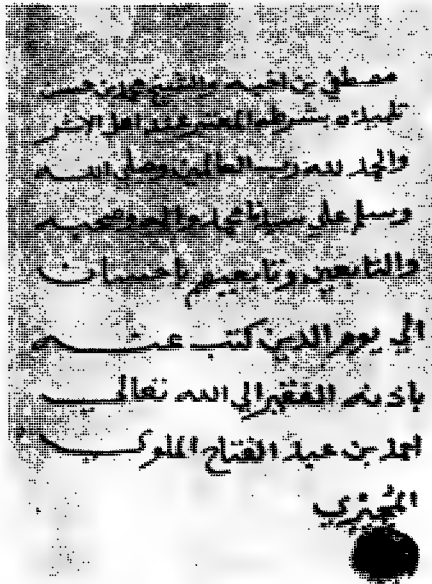 مصطفى بن اخيه والشيخ محمد بن حسن
تلميذه بشرطه المعتبر عند اهل الاثر
والحمد لله رب العالمين وصلى الله
وسلم على سيدنا محمد واله وصحبه
والتابعين وتابعيهم باحسان
الى يوم الدين كتب عنه
باذنه الفقير الى الله تعالى
احمد بن عبد الفتاح الملوي
المجيري